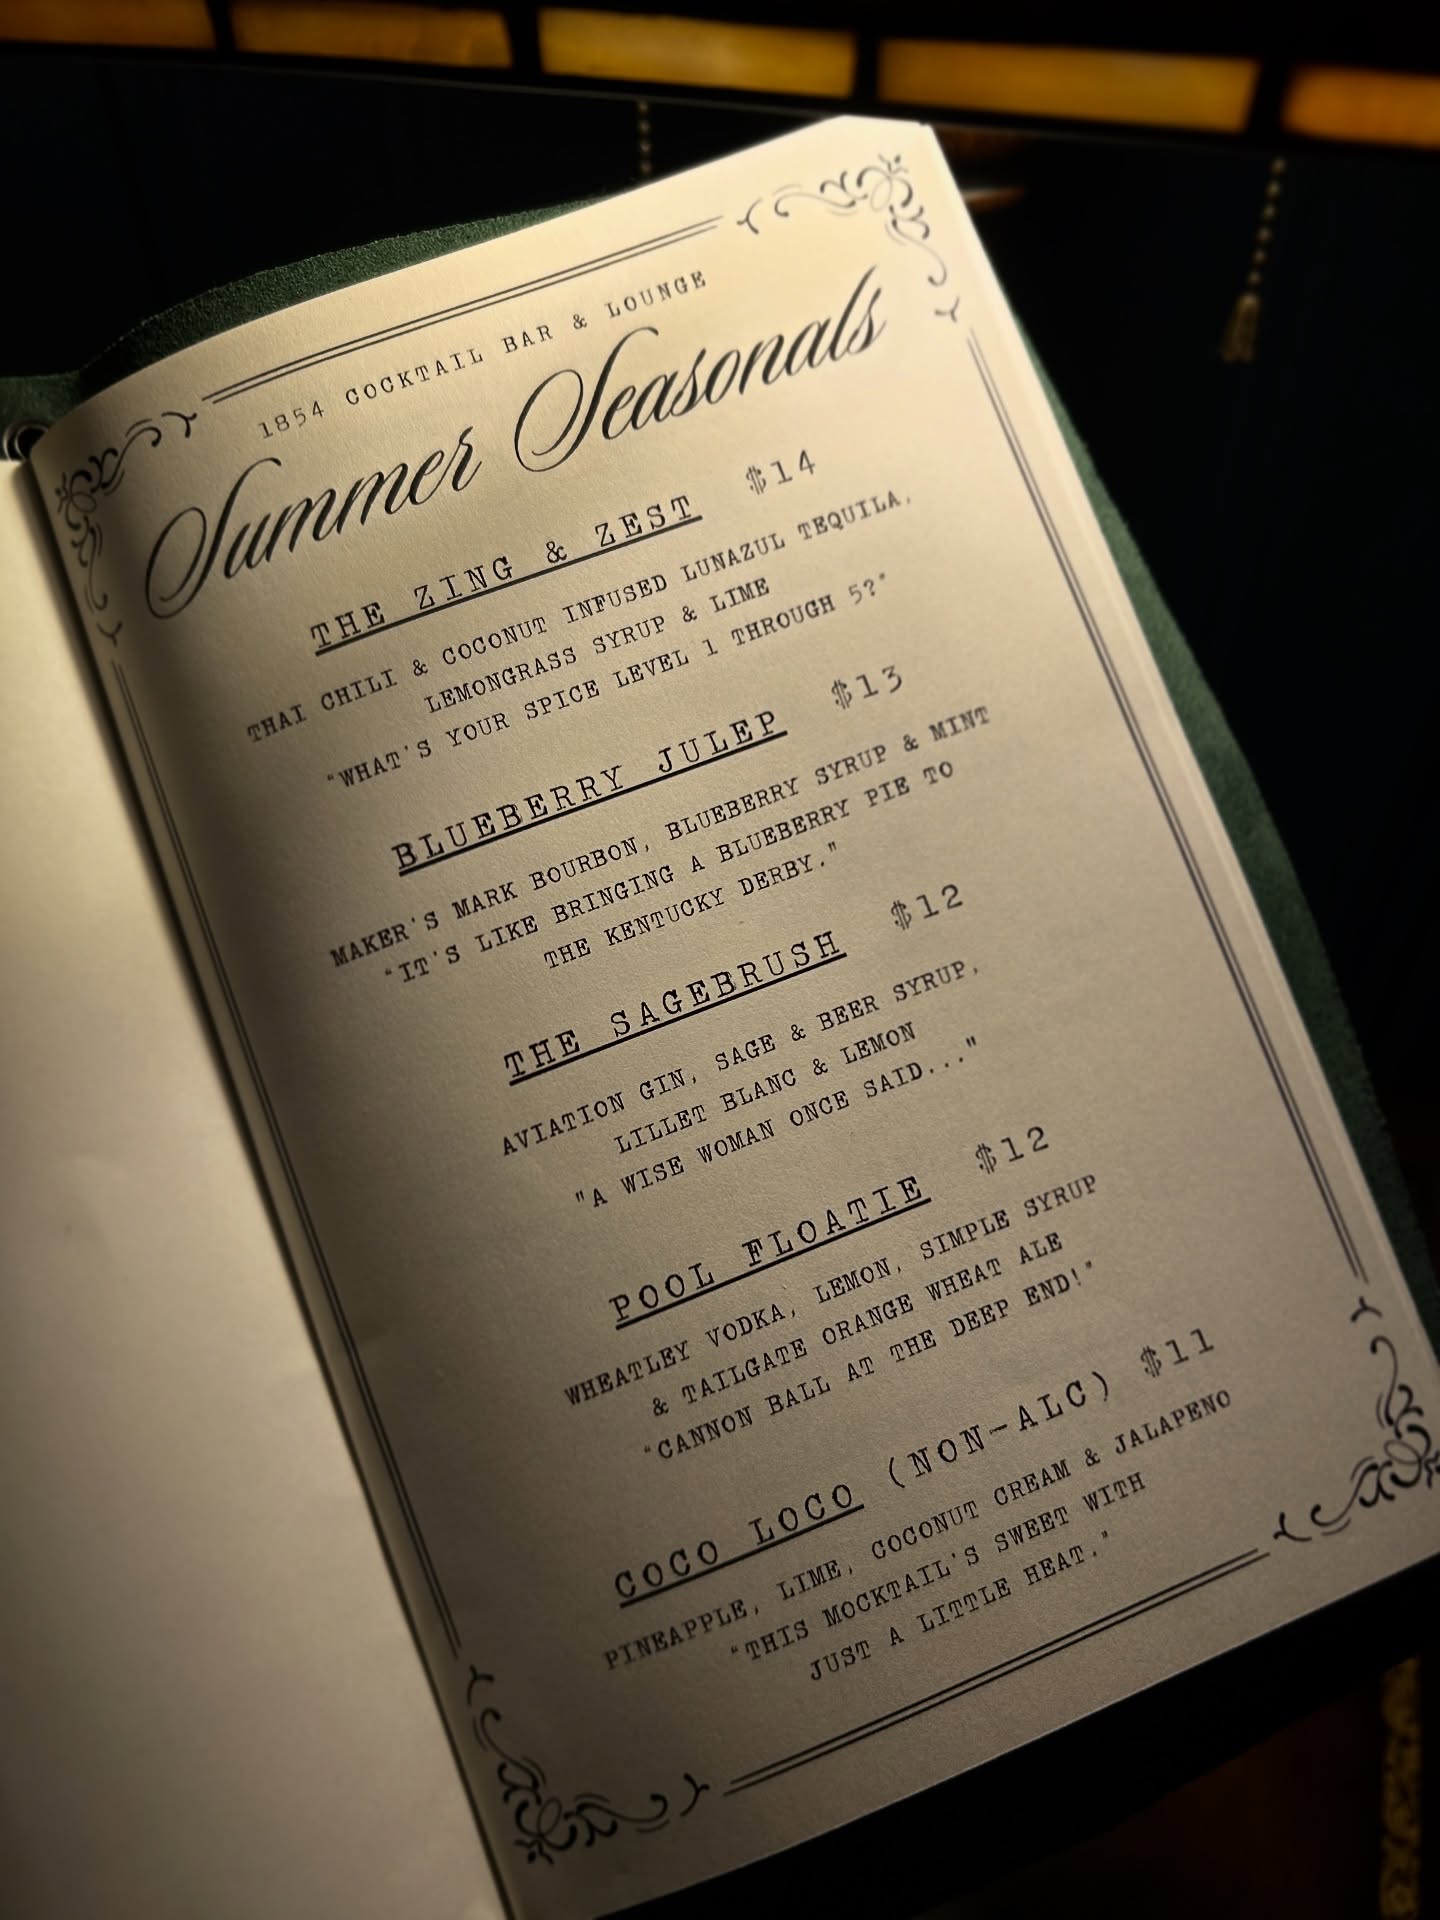 1854 COCKTAIL BAR & LOUNGE
Summer Seasonals
THE ZING & ZEST $14
THAI CHILI & COCONUT INFUSED LUNAZUL TEQUILA,
LEMONGRASS SYRUP & LIME
"WHAT'S YOUR SPICE LEVEL 1 THROUGH 5?"
BLUEBERRY JULEP $13
MAKER'S MARK BOURBON, BLUEBERRY SYRUP & MINT
"IT'S LIKE BRINGING A BLUEBERRY PIE TO
THE KENTUCKY DERBY."
THE SAGEBRUSH $12
AVIATION GIN, SAGE & BEER SYRUP,
LILLET BLANC & LEMON
"A WISE WOMAN ONCE SAID..."
POOL FLOATIE $12
WHEATLEY VODKA, LEMON, SIMPLE SYRUP
& TAILGATE ORANGE WHEAT ALE
"CANNON BALL AT THE DEEP END!"
COCO LOCO (NON-ALC) $11
PINEAPPLE, LIME, COCONUT CREAM & JALAPENO
"THIS MOCKTAIL'S SWEET WITH
JUST A LITTLE HEAT."